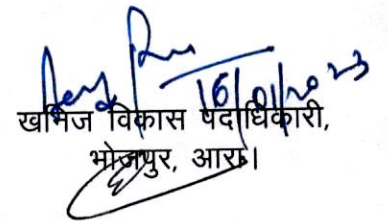 16/01/2023
खनिज विकास पदाधिकारी,
भोजपुर, आरा।